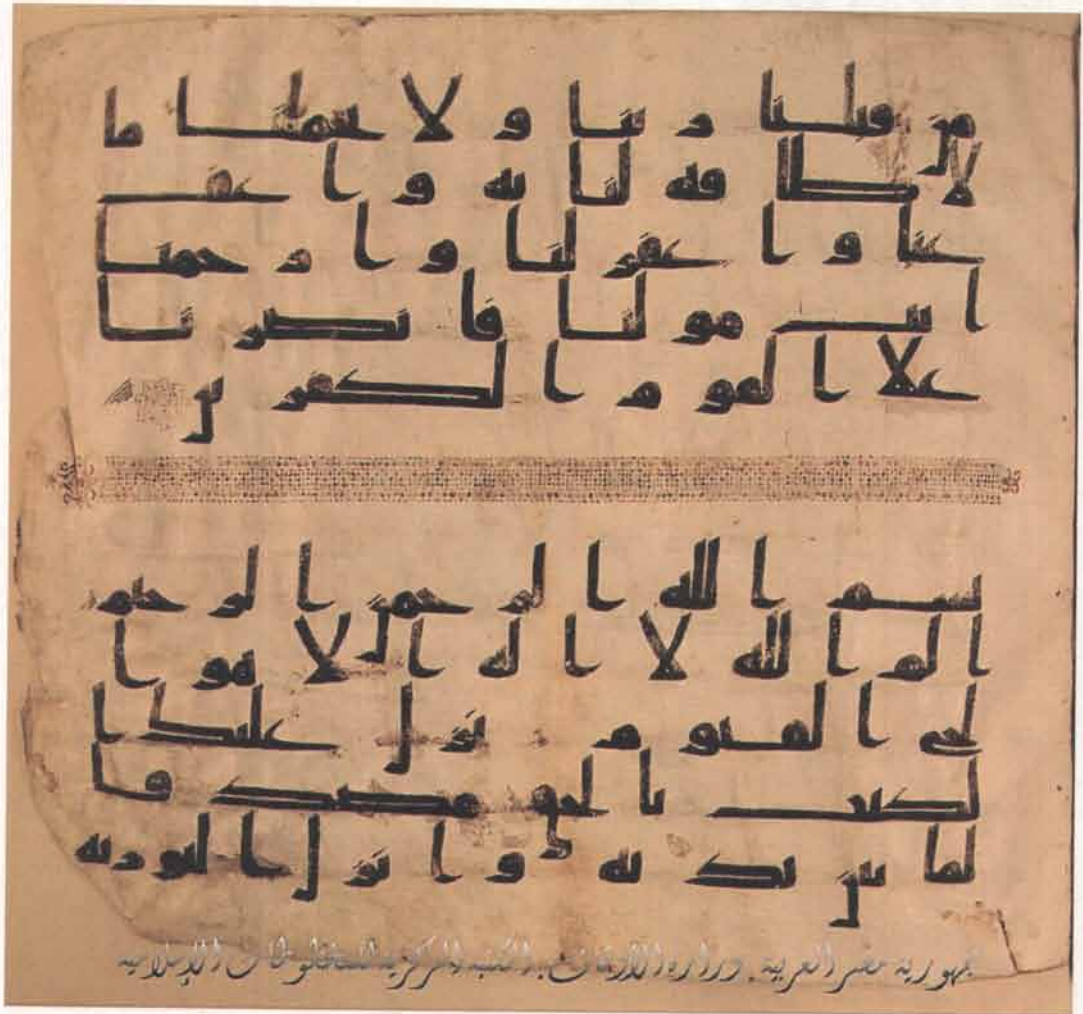 من قبلنا ربنا و لا تحملنا ما
لا طاقه لنا به و اعف
عنا و اغفر لنا و ارحمنا
انت مولنا فانصرنا
علا القوم الكفرين
بسم الله الرحمن الرحيم
الم الله لا اله الا هو ا
لحي القيوم نزل عليك ا
لكتب بالحق مصدقا
لما بين يديه و انزل التوريه
جمهورية مصر العربية. وزارة الأوقاف. المكتبة المركزية للمخطوطات الإسلامية